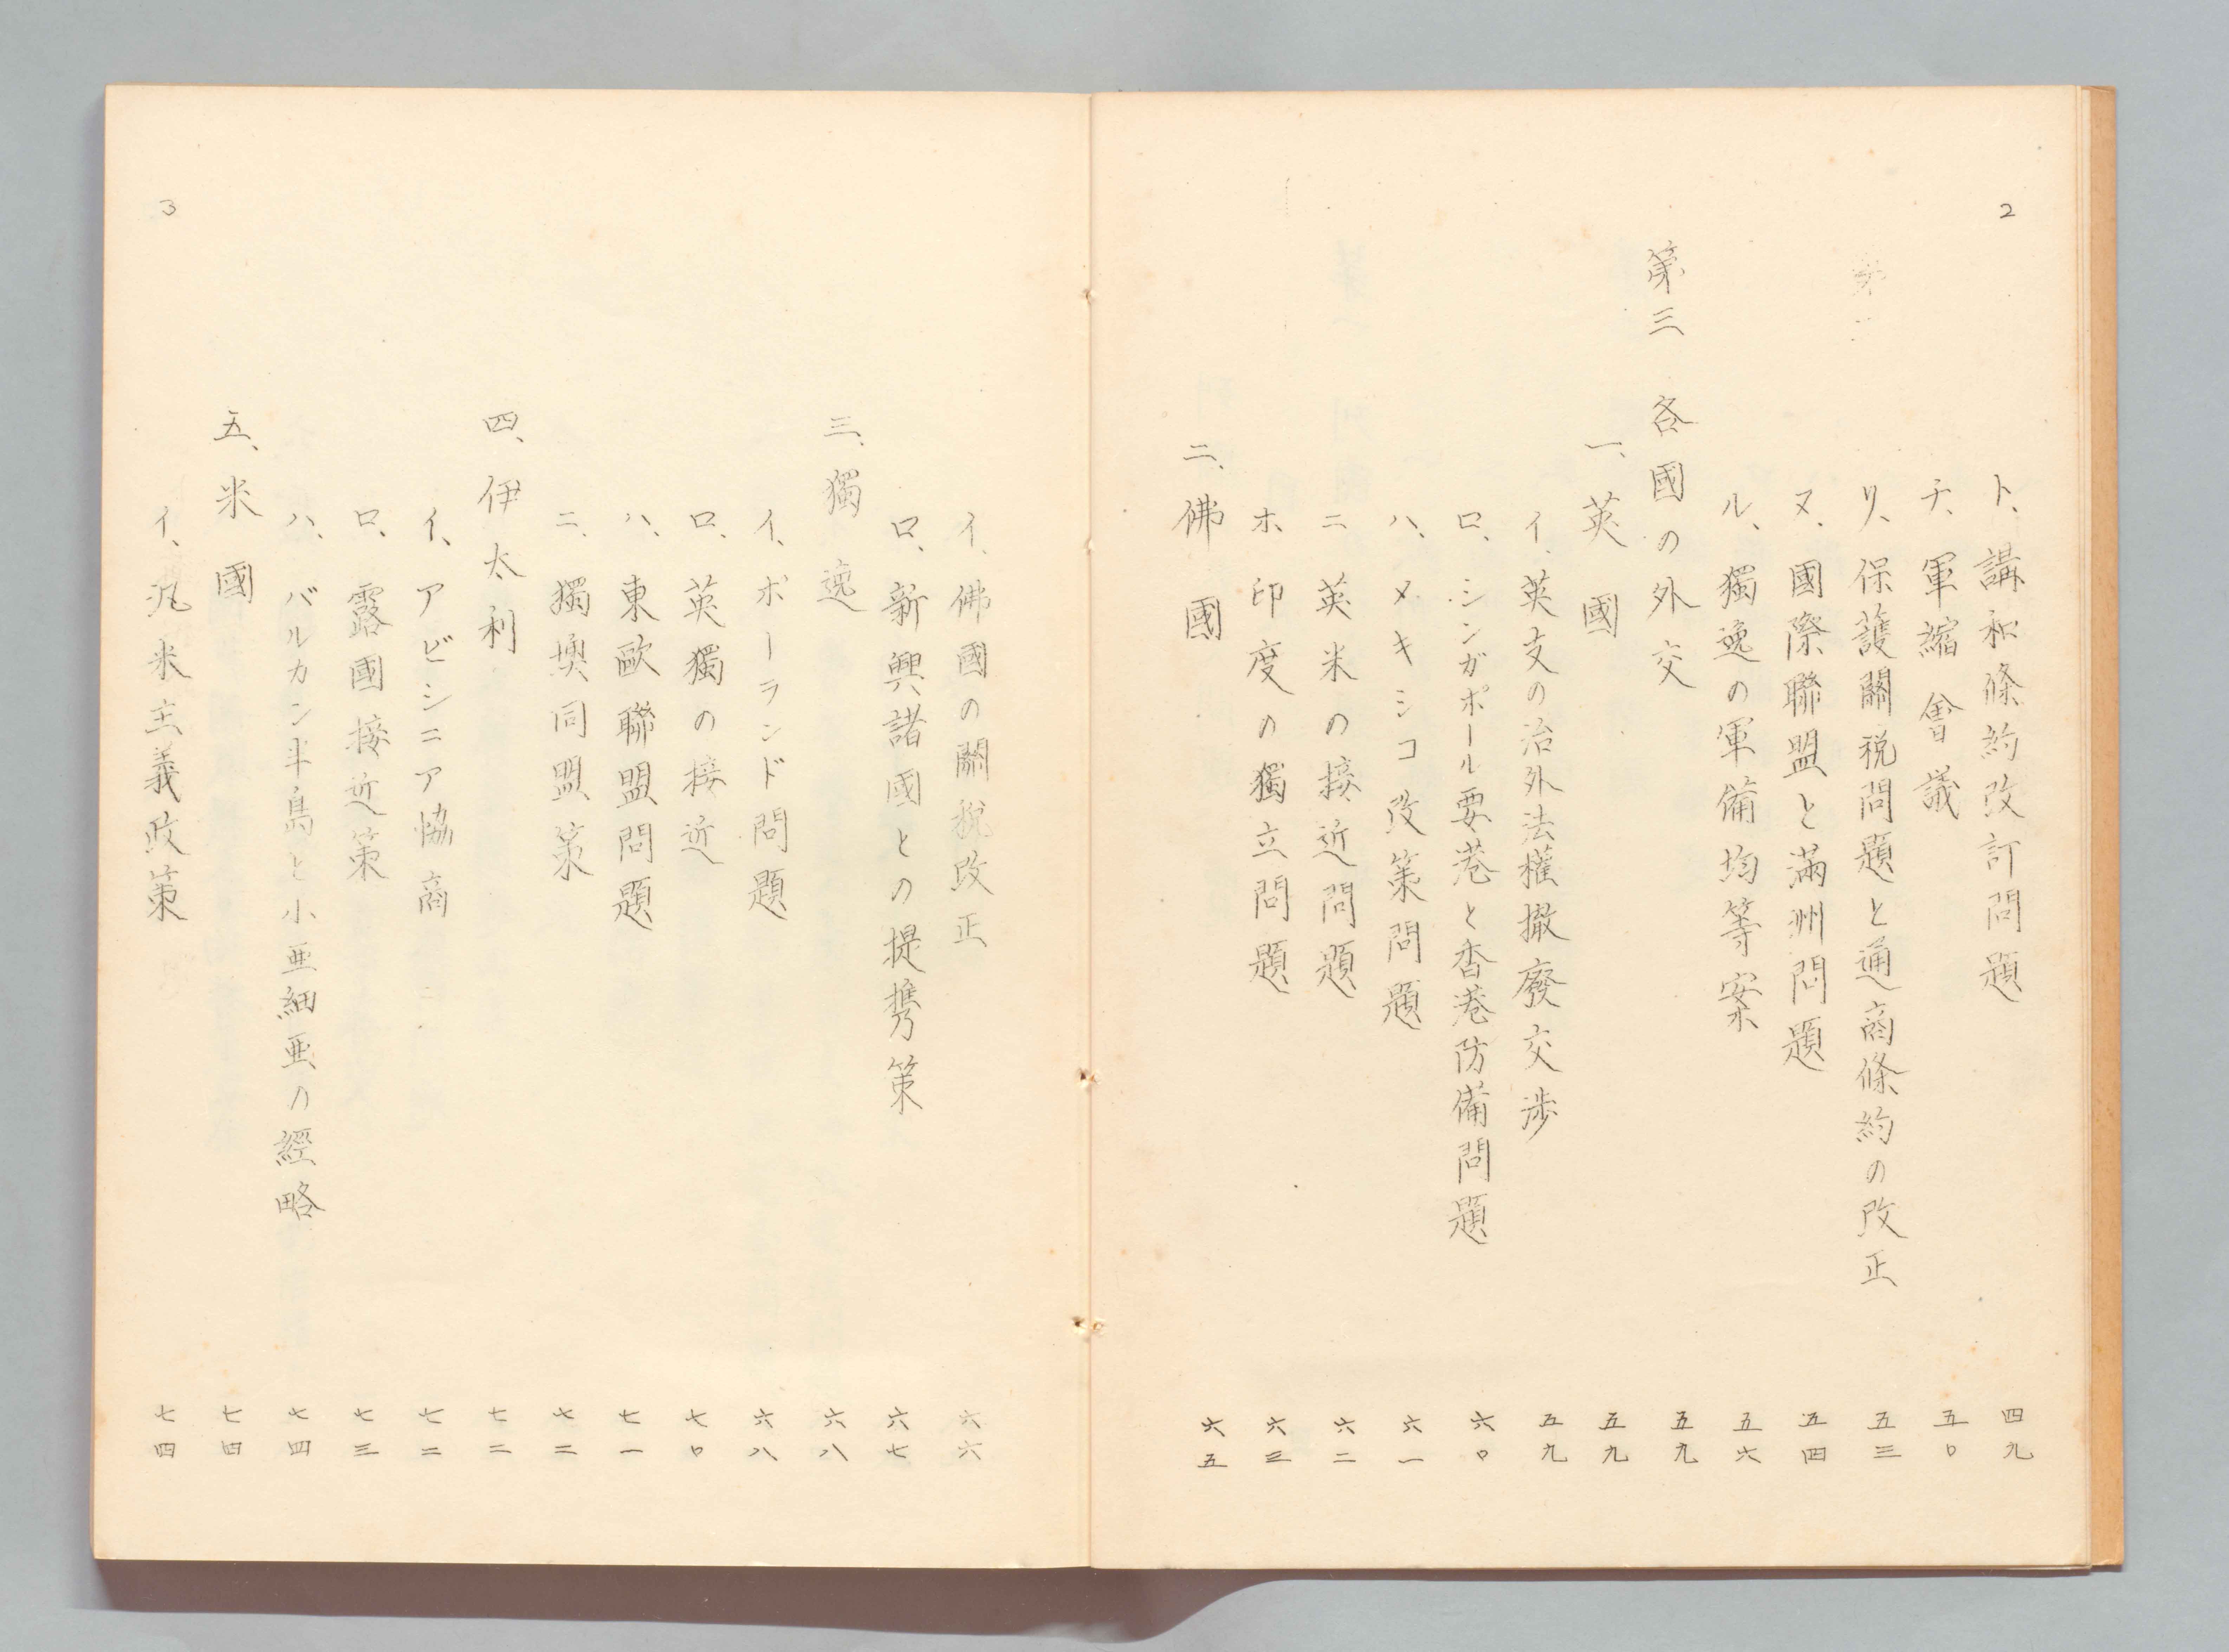 2
ト、講和條約改訂問題 四九
チ、軍縮會議 五〇
リ、保護關税問題と通商條約の改正 五三
ヌ、國際聯盟と滿洲問題 五四
ル、獨逸の軍備均等案 五六
第三 各國の外交 五九
一、英國 五九
イ、英支の治外法權撤廢交渉 五九
ロ、シンガポール要港と香港防備問題 六〇
ハ、メキシコ改策問題 六一
ニ 英米の接近問題 六二
ホ、印度の獨立問題 六三
二、佛國 六五
3
イ、佛國の關税改正 六六
ロ、新興諸國との提携策 六七
三、獨逸 六八
イ、ポーランド問題 六八
ロ、英獨の接近 七〇
ハ、東歐聯盟問題 七一
ニ、獨墺同盟策 七二
四、伊太利 七二
イ、アビシニア協商 七二
ロ、露國接近策 七三
ハ、バルカン半島と小亜細亜の經略 七四
五、米國 七四
イ、汎米主義政策 七四